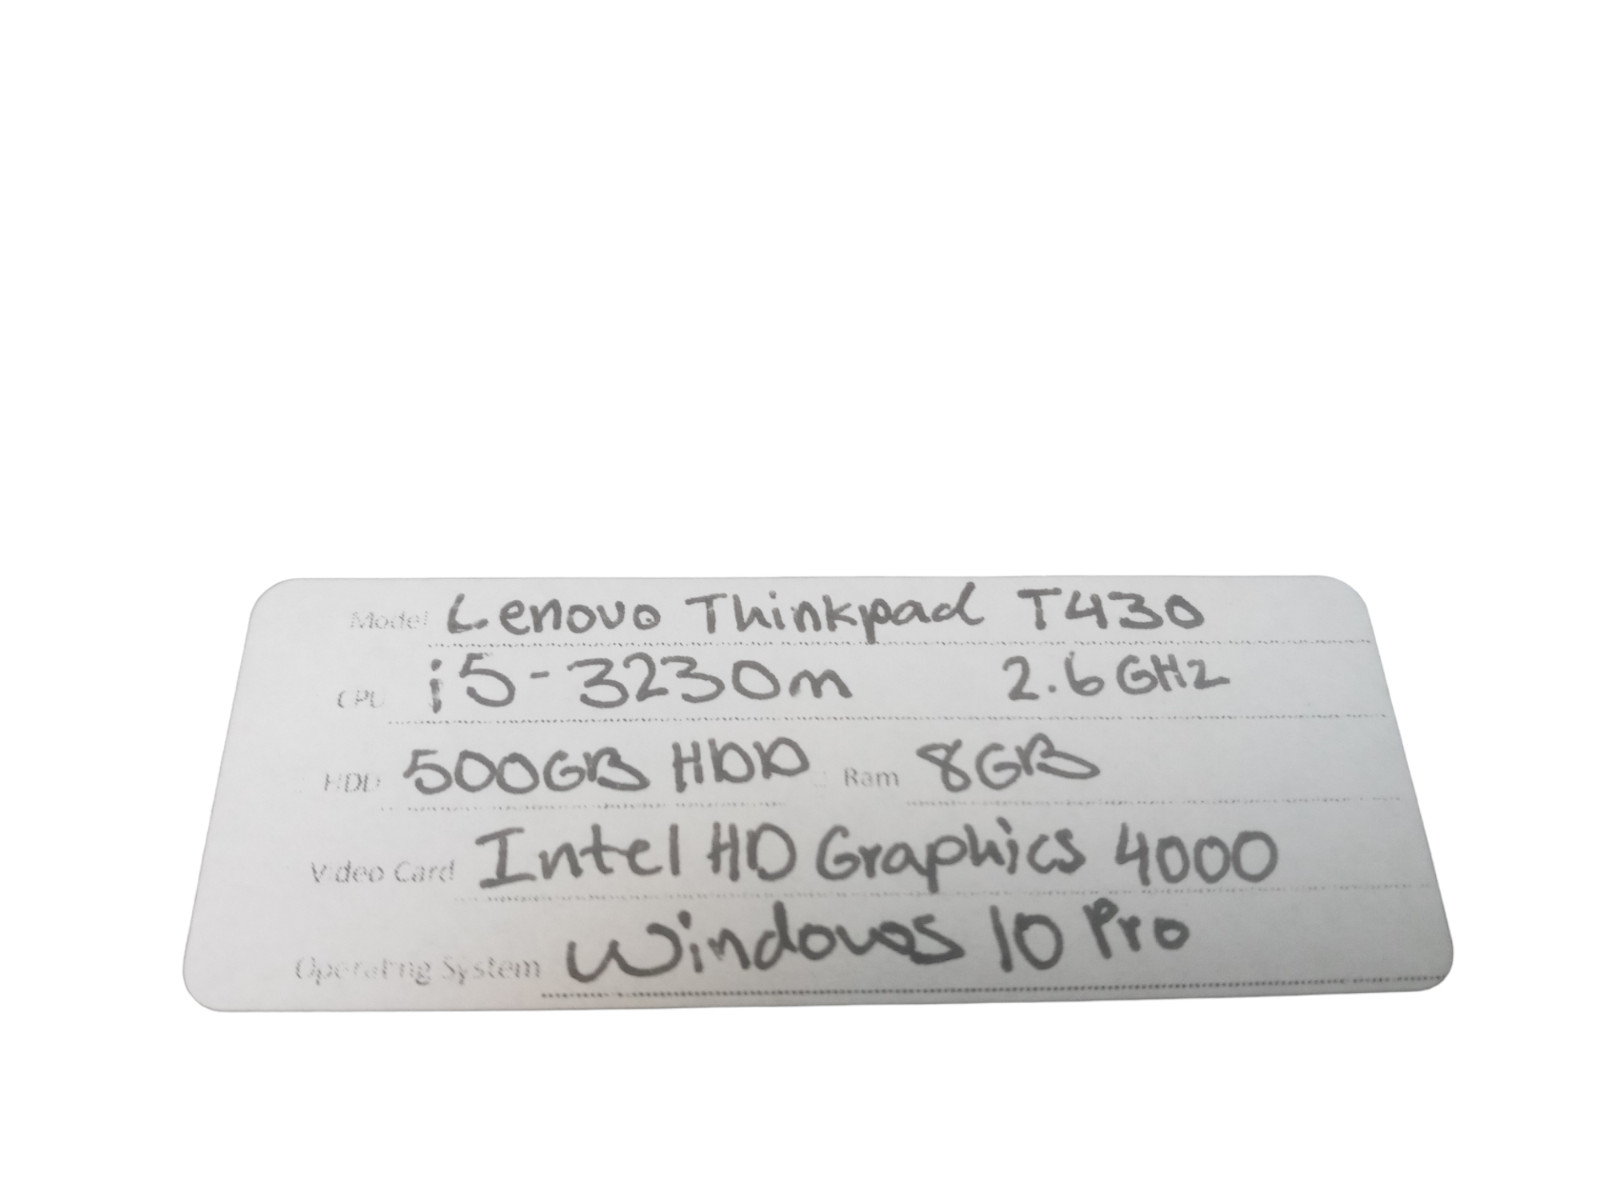 Model Lenovo Thinkpad T430
CPU i5-3230m 2.6GHz
HDD 500GB HDD Ram 8GB
Video Card Intel HD Graphics 4000
Operating System Windows 10 Pro